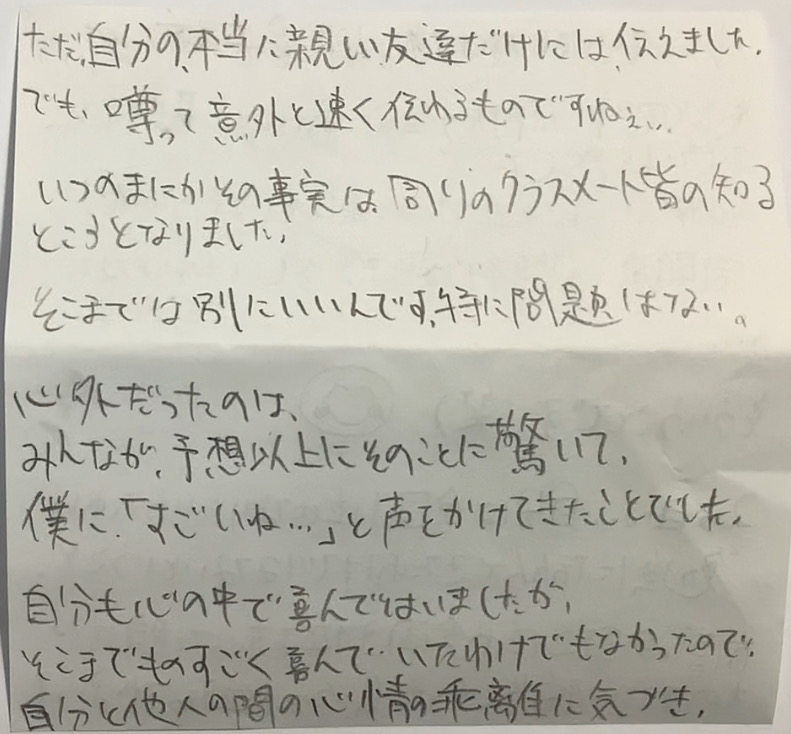 ただ、自分の、本当に親しい友達だけには、伝えました。
でも、噂って意外と速く伝わるものですねぇ…
いつのまにかその事実は、周りのクラスメート皆の知る
ところとなりました。
そこまでは別にいいんです、特に問題はない。
心外だったのは、
みんなが、予想以上にそのことに驚いて、
僕に、「すごいね…」と声をかけてきたことでした。
自分も心の中で喜んではいましたが、
そこまでものすごく喜んで、いたわけでもなかったので、
自分と他人の間の心情の乖離に気づき、